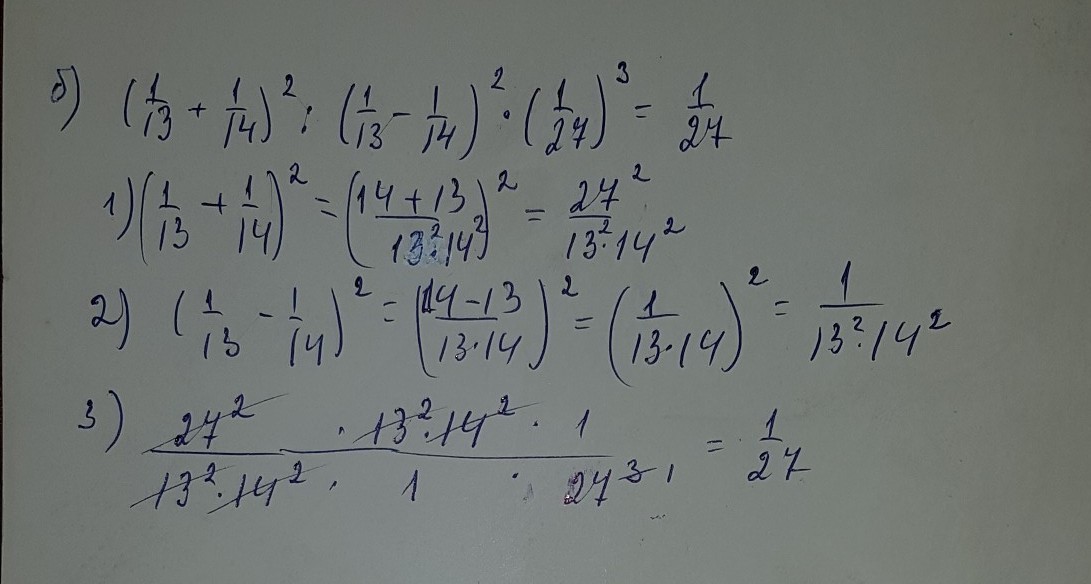 б) (1/13 + 1/14)² : (1/13 - 1/14)² · (1/27)³ = 1/27
1) (1/13 + 1/14)² = ((14 + 13)/(13²·14²))² = 27²/(13²·14²)
2) (1/13 - 1/14)² = ((14-13)/(13·14))² = (1/(13·14))² = 1/(13²·14²)
3) (27² · 13²·14² · 1)/(13²·14² · 1 · 27³) = 1/27